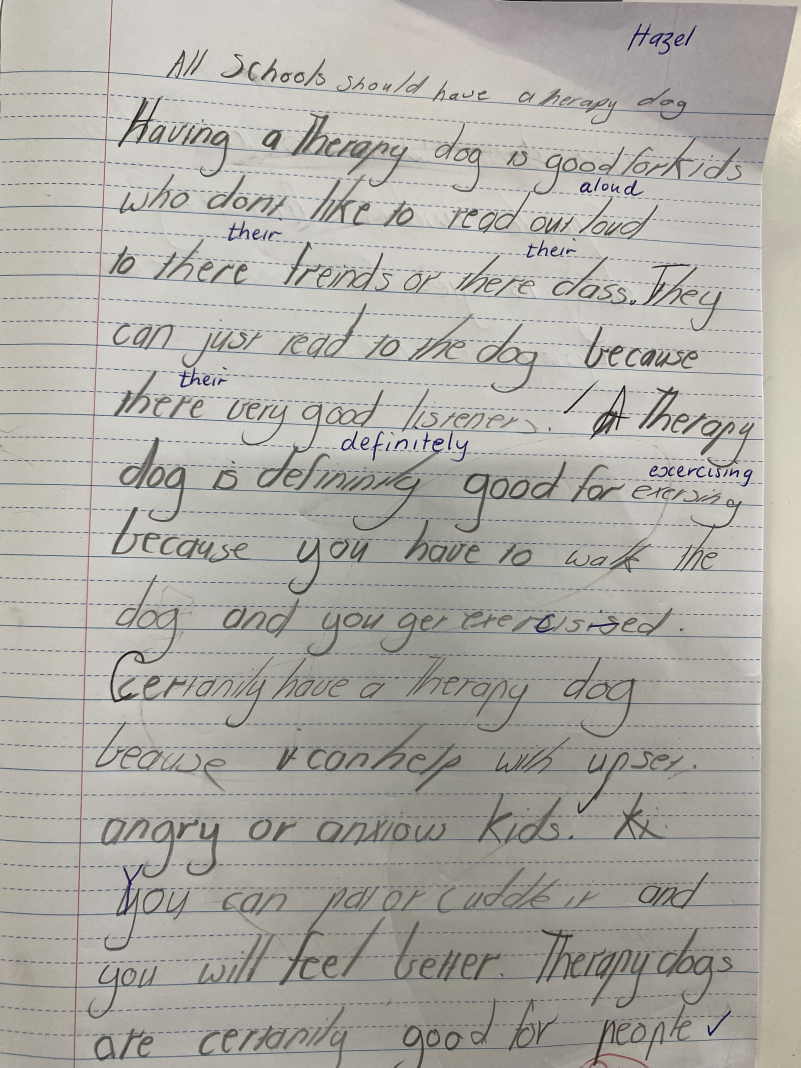 Hazel
All Schools should have a therapy dog
Having a Therapy dog is good for kids
aloud
who dont like to read out loud
their their
to there freinds or there class. They
can just read to the dog because
their
there very good listeners. A Therapy
definitely excercising
dog is defininily good for exersing
because you have to walk the
dog and you get exercisised.
Certanily have a Therapy dog
beause it can help with upset.
angry or anxious kids.
You can pat or cuddle it and
you will feel better. Therapy dogs
are certanily good for people